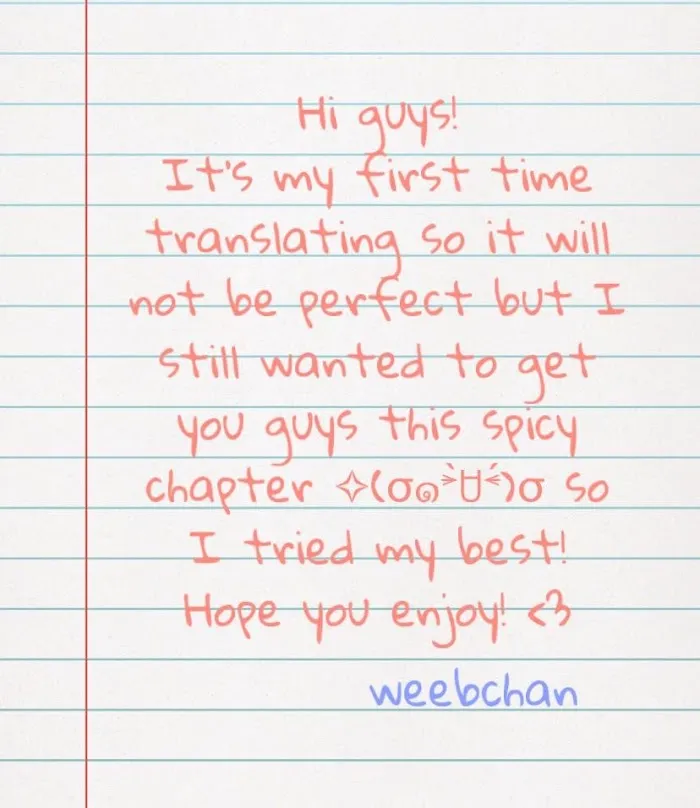 Hi guys!
It's my first time
translating so it will
not be perfect but I
still wanted to get
you guys this spicy
chapter ✧(σ๑˃̶̀ꇴ˂̶́)σ so
I tried my best!
Hope you enjoy! <3
weebchan